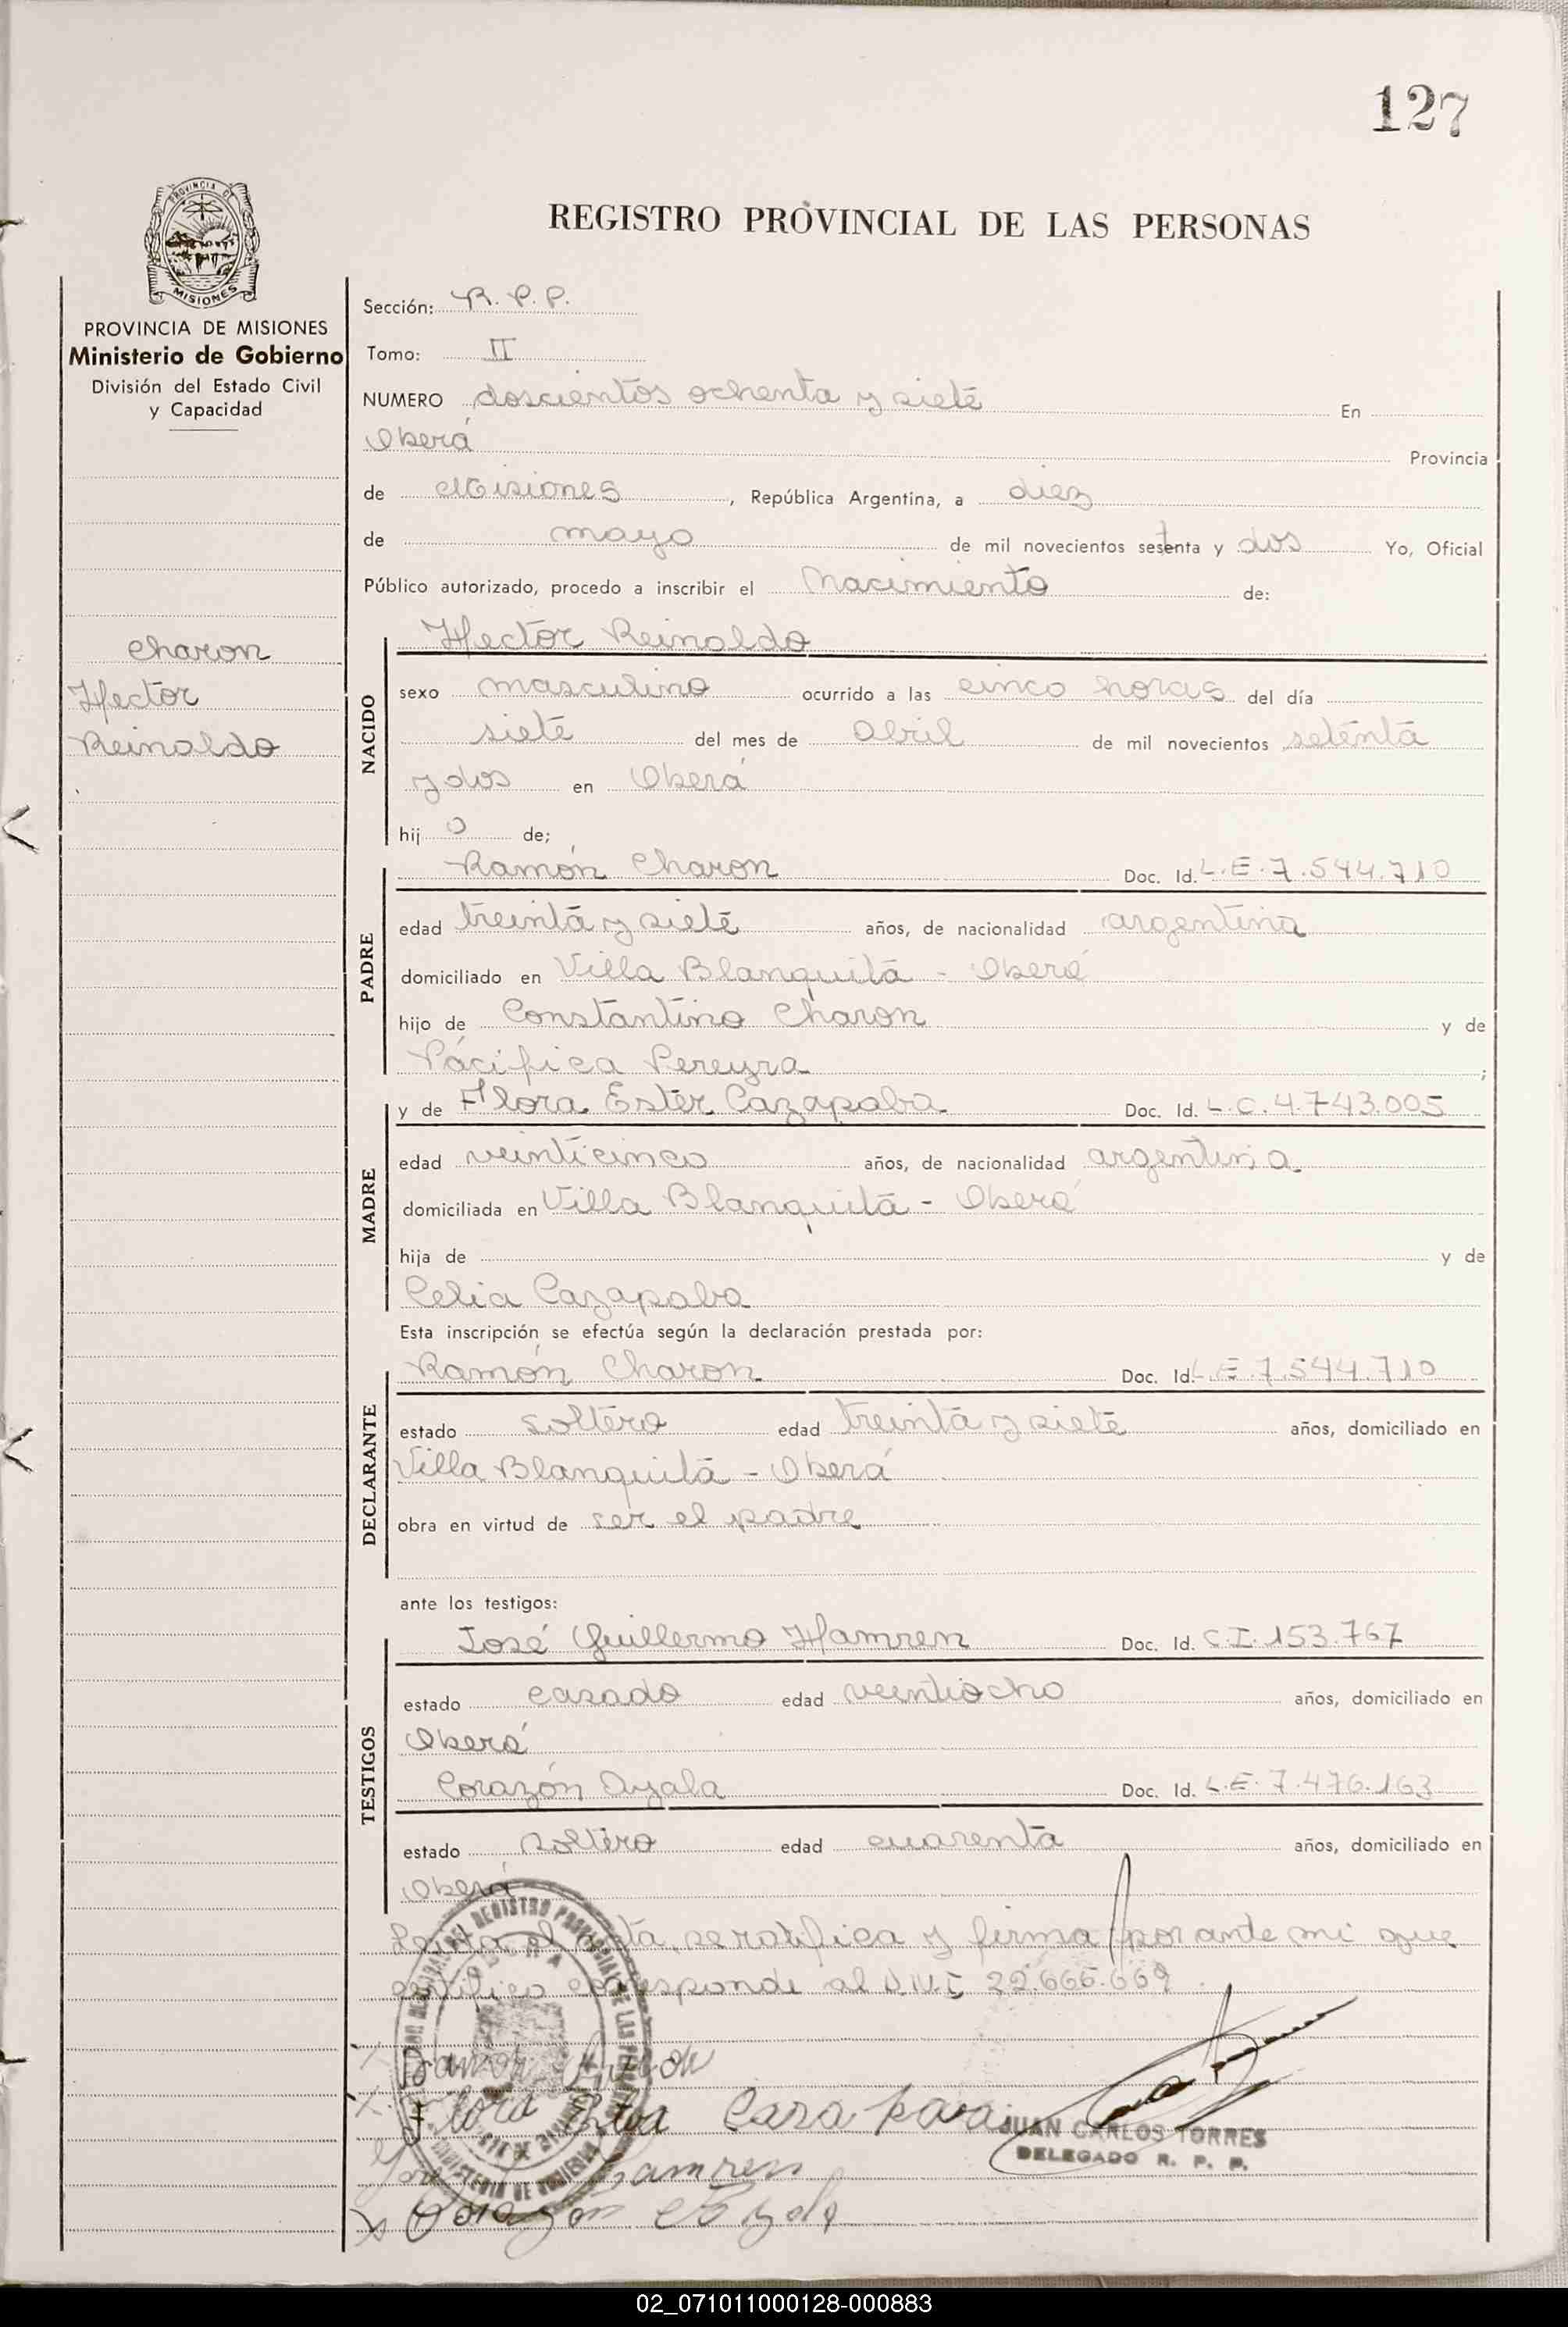 127
PROVINCIA DE
MISIONES
REGISTRO PROVINCIAL DE LAS PERSONAS
PROVINCIA DE MISIONES
Ministerio de Gobierno
División del Estado Civil
y Capacidad
Charon
Hector
Reinaldo
Sección: R. P. P.
Tomo: II
NUMERO doscientos ochenta y siete En
Oberá Provincia
de Misiones, República Argentina, a diez
de mayo de mil novecientos setenta y dos Yo, Oficial
Público autorizado, procedo a inscribir el Nacimiento de:
NACIDO
Hector Reinaldo
sexo masculino ocurrido a las cinco horas del día
siete del mes de Abril de mil novecientos setenta
y dos en Oberá
hijo de;
PADRE
Ramón Charon Doc. Id. L.E.7.544.710
edad treinta y siete años, de nacionalidad argentina
domiciliado en Villa Blanquita - Oberá
hijo de Constantino Charon y de
Pacífica Pereyra ;
MADRE
y de Flora Ester Cazapaba Doc. Id. L.C.4.743.005
edad veinticinco años, de nacionalidad argentina
domiciliada en Villa Blanquita - Oberá
hija de y de
Celia Cazapaba
Esta inscripción se efectúa según la declaración prestada por:
DECLARANTE
Ramón Charon Doc. Id. L.E.7.544.710
estado soltero edad treinta y siete años, domiciliado en
Villa Blanquita - Oberá
obra en virtud de ser el padre
ante los testigos:
TESTIGOS
José Guillermo Hamren Doc. Id. C.I.153.767
estado casado edad veintiocho años, domiciliado en
Oberá
Corazón Ayala Doc. Id. L.E.7.476.163
estado soltero edad cuarenta años, domiciliado en
Oberá
Leída el acta, se ratifica y firma por ante mi que
certifico corresponde al D.N.I 22.666.669
Flora Cazapava
JUAN CARLOS TORRES
DELEGADO R. P. P.
Jose Hamren
Corazon Ayala
02_071011000128-000883